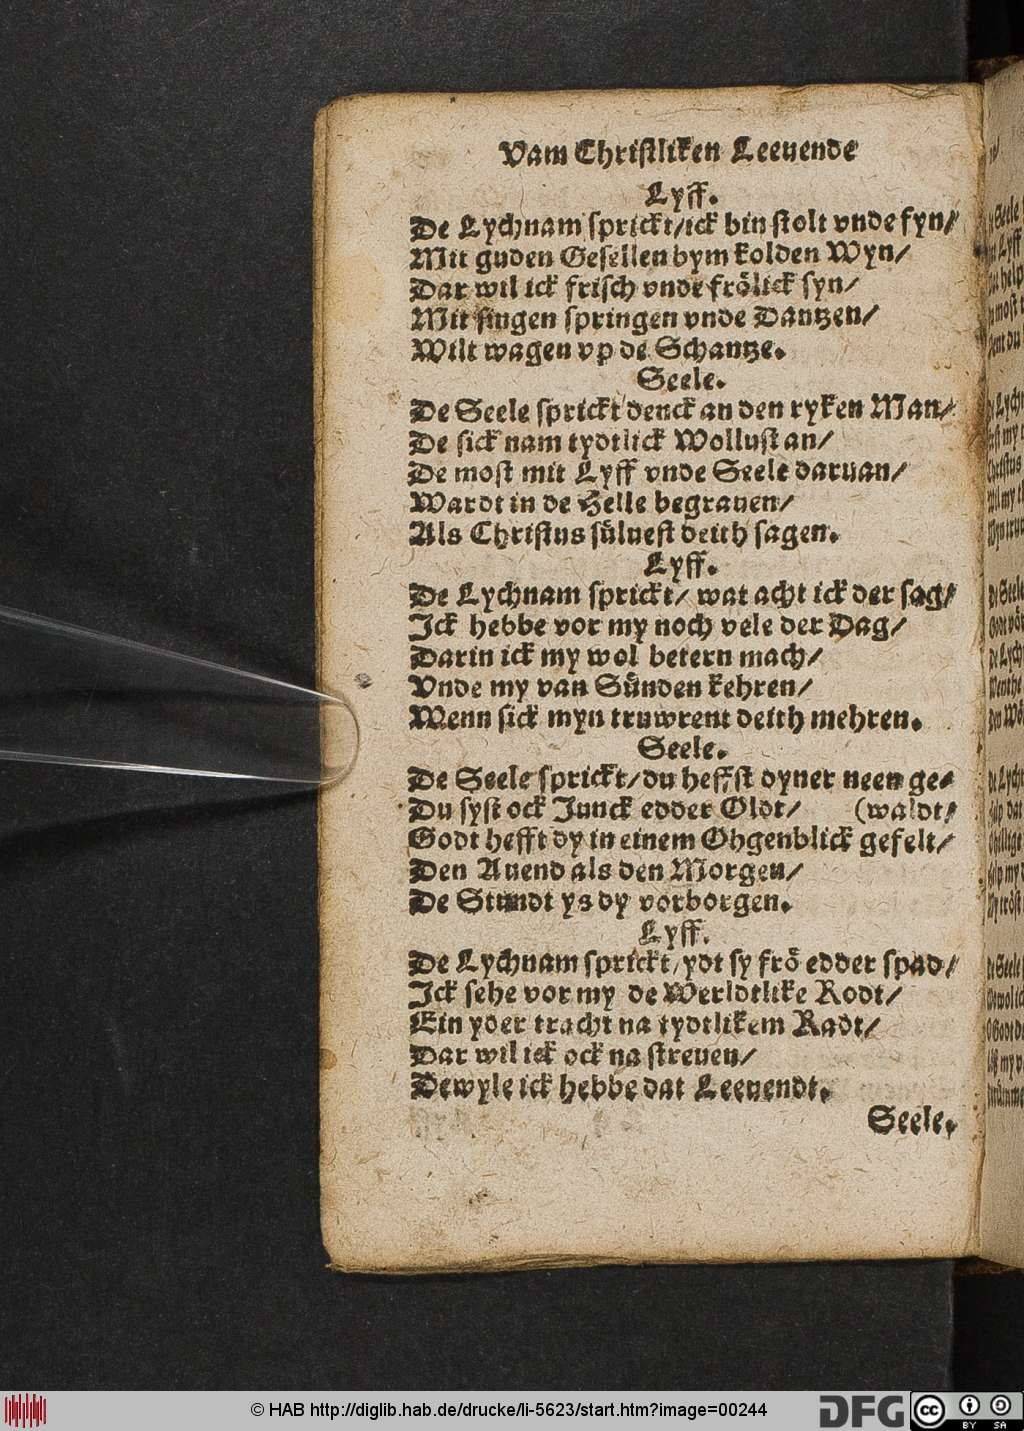 Vam Christliken Leeuende
Lyff.
De Lychnam sprickt/ick bin stolt vnde fyn/
Mit guden Gesellen bym kolden Wyn/
Dar wil ick frisch vnde frölick syn/
Mit singen springen vnde Dantzen/
Wilt wagen vp de Schantze.
Seele.
De Seele sprickt denck an den ryken Man/
De sick nam tydtlick Wollust an/
De most mit Lyff vnde Seele daruan/
Wardt in de Helle begrauen/
Als Christus sůluest deith sagen.
Lyff.
De Lychnam sprickt/ wat acht ick der sag/
Ick hebbe vor my noch vele der Dag/
Darin ick my wol betern mach/
Vnde my van Sůnden kehren/
Wenn sick myn truwrent deith mehren.
Seele.
De Seele sprickt/du heffst dyner neen ge-
Du syst ock Junck edder Oldt/ (waldt/
Godt hefft dy in einem Ohgenblick gefelt/
Den Auend als den Morgen/
De Stundt ys dy vorborgen.
Lyff.
De Lychnam sprickt/ydt sy frö edder spad/
Ick sehe vor my de Werldtlike Rodt/
Ein yder tracht na tydtlikem Radt/
Dar wil ick ock na streuen/
Dewyle ick hebbe dat Leeuendt.
Seele.
© HAB http://diglib.hab.de/drucke/li-5623/start.htm?image=00244
DFG
cc BY SA